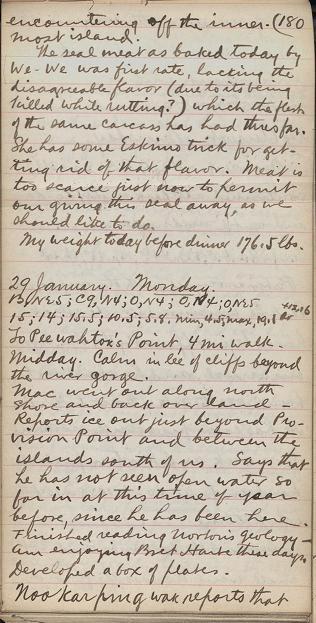 encountering off the inner- (180
most island.
The seal meat as baked today by
We-We was first rate, lacking the
disagreeable flavor (due to its being
killed while rutting?) which the flesh
of the same carcass has had thus far.
She has some Eskimo trick for get-
ting rid of that flavor. Meat is
too scarce just now to permit
our giving this seal away, as we
should like to do.
My weight today before dinner 176.5 lbs.
29 January. Monday.
B, NE5; C9, N4; O, N4; O, N4; O, NE5
15; 14; 15.5; 10.5; 5.8, min, 4.5; max, 19.1
To Pee wahtox's Point, 4 mi walk.
Midday. Calm in lee of cliffs beyond
the river gorge.
Mac went out along north
shore and back over land -
Reports ice out just beyond Pro-
vision Point and between the
islands south of us. Says that
he has not seen open water so
far in at this time of year
before, since he has been here.
Finished reading Norton's geology -
am enjoying Bret Harte these days.
Developed a box of plates.
Nookarpingwak reports that